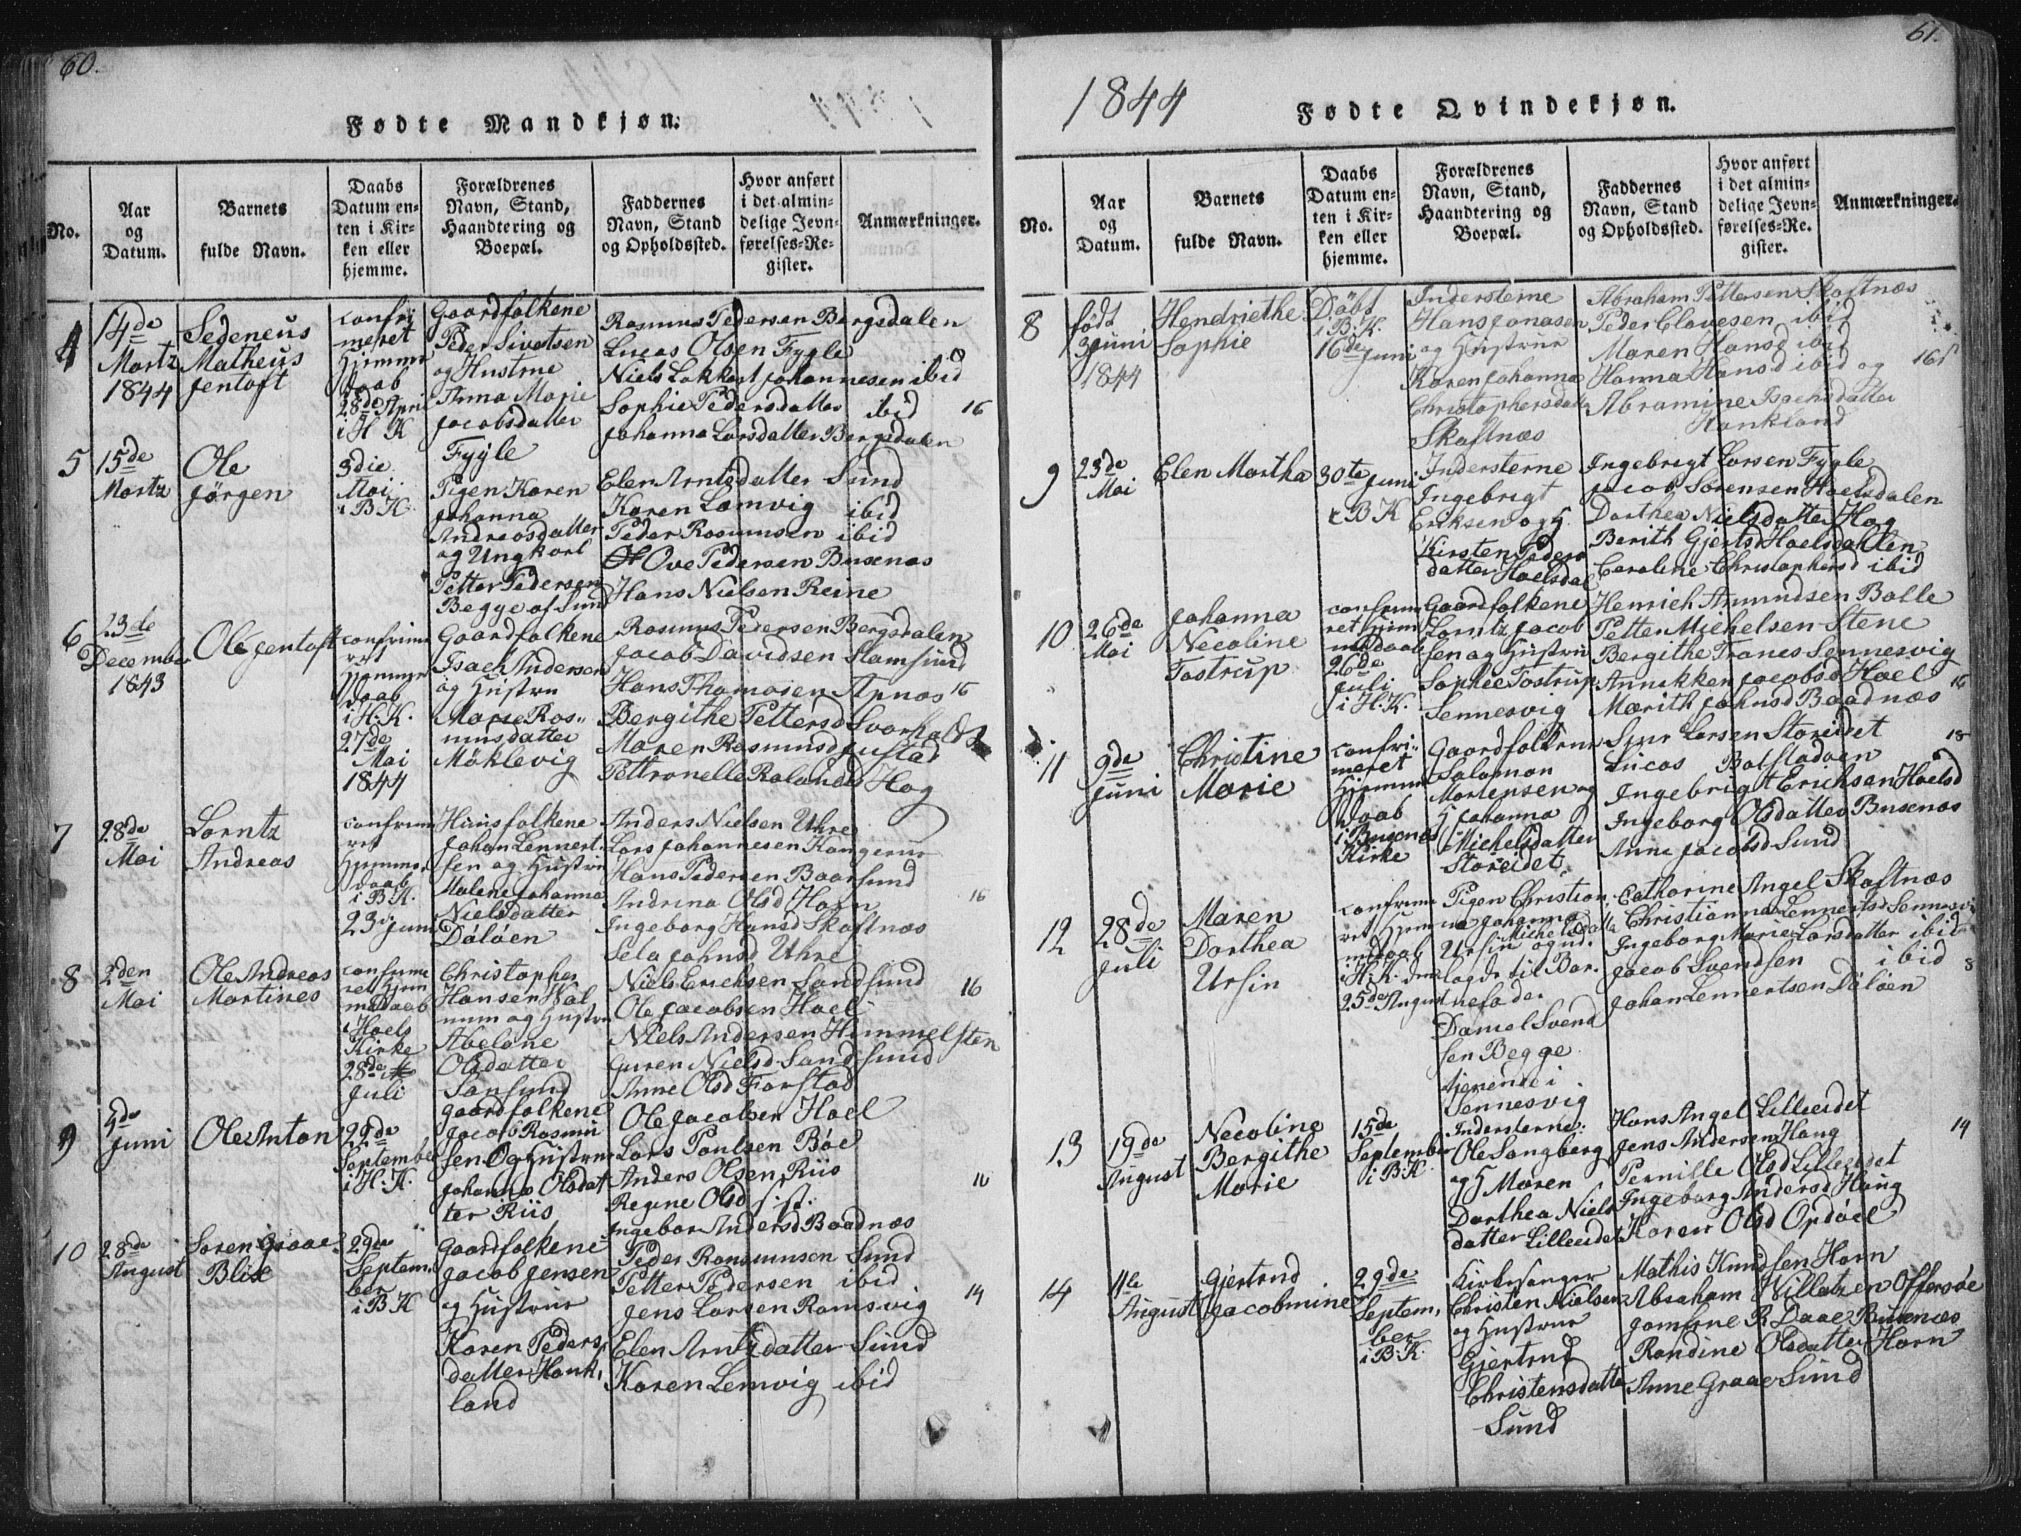 60.
Fødte Mandkjøn.
No.
Aar
og
Datum.
Barnets
fulde Navn.
Daabs
Datum en-
ten i Kir-
ken eller
hjemme.
Forældrenes
Navn, Stand,
Haandtering og
Boepæl.
Faddernes
Navn, Stand
og Opholdssted.
Hvor anført
i det almin-
delige Jevn-
førelses-Re-
gister.
Anmærkninger.
4
14de
Martz
1844
Sedeneus
Matheus
Jentoft
confir
meret
Hjemme
Daab
28de April
i H K
Gaardfolkene
Peder Sivertsen
og Hustrue
Anna Marie
Jacobsdatter
Fygle
Rasmus Pedersen Bergsdalen
Lucas Olsen Fygle
Niels Lokkert Johannesen ibid
Sophie Pedersdatter ibid
Johanna Larsdatter Bergsdalen
16
5
15de
Martz
Ole
Jörgen
3die
Mai
i B K.
Pigen Karen
Johanna
Andreasdatter
og Ungkarl
Petter Pedersen
Begge af Sund
Elen Arntsdatter Sund
Karen Lamvig ibid
Peder Rasmusen ibid
Ove Pedersen Busenæs
Hans Nielsen Reine
6
23de
December
1843
Ole Jentoft
confirme
ret
Hjemme
Daab
i H. K.
27de
Mai
1844
Gaardfolkene
Isach Andersen
og Hustru
Marie Ras-
musdatter
Möklevig
Rasmus Pedersen Bergsdalen
Jacob Davidsen Stamsund
Hans Thomasen Apnæs
Bergithe Pettersd
Maren Rasmusd Justad
Pettronelle Rolandsd Hag
16
7
28de
Mai
Lorntz
Andreas
confirme
ret
Hjemme
Daab
i B.K.
23de Juni
Huusfolkene
Johan Lennert-
sen og Hustru
Malene Johanna
Nielsdatter
Dalöen
Anders Nielsen Uhre
Lars Johannesen Kangerur
Hans Pedersen Baarsund
Andrina Olsd Horn
Ingeborg Hansd Skaftnæs
Sela Johnsd Uhre
16
8
2den
Mai
Ole Andreas
Martines
confirme
ret Hjem
medaab
i Haels
Kirke
28de
Juli
Christopher
Hansen Val
num og Hustru
Abelone
Olsdatter
Sansund
Niels Erichsen Sandsund
Ole Jacobsen Hael
Niels Andersen Himmelsten
Guren Nielsd Sandsund
Anne Olsd Farstad
16
9
5de
Juni
Ole Anton
22de
September
i H. K.
Gaardfolkene
Jacob Rasmu
sen Og Hustru
Johanna Olsdat
ter Riis
Ole Jacobsen Hael
Lars Poulsen Böe
Anders Olsen Riis
Regine Olsd
Ingebor Andersd Baadnæs
10
10
28de
August
Soren Graae
Blix
29de
Septem.
ber
i B K
Gaardfolkene
Jacob Jensen
og Hustrue
Karen Peders,
datter Hank,
land
Peder Rasmusen Sund
Petter Pedersen ibid
Jens Larsen Ramsvig
Elen Arntzdatter Sund
Karen Lemvig ibid
14
61.
1844
Fødte Qvindekjøn.
No.
Aar
og
Datum.
Barnets
fulde Navn.
Daabs
Datum en-
ten i Kir-
ken eller
hjemme.
Forældrenes
Navn, Stand,
Haandtering og
Boepæl.
Faddernes
Navn, Stand
og Opholdssted.
Hvor anført
i det almin-
delige Jevn-
førelses-Re-
gister.
Anmærkninger.
8
födt
3 Juni
1844
Hendriethe
Sophie
Döbt
i B.K.
16de Juni
Indersterne
Hans Jonasen
og Hustrue
Karen Johanna
Christophersdatter
Skaftnæs
Abraham Pettersen Skaftnæs
Peder Clavesen ibid
Maren Hansd ibid
Hanna Hansd ibid og
Abramine Isachsdatter
Hankland
9
23de
Mai
Elen Martha
30te Juni
i B K
Indersterne
Ingebrigt
Eriksen og H.
Kirsten Peders
datter Haelsdal
Ingebrigt Larsen Fygle
Jacob Sörensen Haelsdalen
Dorthea Nielsdatter Hag
Berith Gjertsd Haelsdahlen
Caroline Christophersd ibid
10
26de
Mai
Johanna
Necoline
Tostrup
confirme
ret Hjem
medaab
26de
Juli
i H. K.
Gaardfolkene
Lorntz Jacob
sen og Hustru
Sophie Tostrup
Sennesvig
Henrich Amundsen Bolle
Petter Michelsen Stene
Bergithe Tranes Sennesvig
Annikken Jacobsd Hael
Marith Johnsd Baadnæs
16
11
9de
Juni
Christine
Marie
confir-
meret
Hjemme
Daab
i Busenæs
Kirke
Gaardfolkene
Salomon
Mortensen og
H Johanna
Michelsdatter
Storeidet
Siur Larsen Storeidet
Lucas Bolstadöen
Ingebrigt Erichsen Haelsd
Ingeborg Olsdatter Busenæs
Anne Jacobsd Sund
18
12
28de
Juli
Maren
Dorthea
Ursin
confirme
ret Hjem
medaab
i H. K. den
25de August
Pigen Christian
na Johanna
Michelsdatter
Ursin og ud
lagde til Bar.
nefader
Daniel Svend
sen Begge
tjenende i
Sennesvig
Catharine Angel Skaftnæs
Christianna Lennertsd Sennesvig
Ingeborg Marie Larsdatter ibid
Jacob Svendsen ibid
Johan Lennertsen Dalöen
8
13
19de
August
Necoline
Bergithe
Marie
15de
September
i B.K.
Indersterne
Ole Sangberg
og H Maren
Dorthea Niels
datter Lilleeidet
Hans Angel Lilleeidet
Jens Andersen Haug
Pernille Olsd Lilleeidet
Ingeborg Andersd Haug
Karen Olsd Opdael
14
14
4de
August
Gjertrud
Jacobmine
29de
Septem,
ber
i B.K.
Kirkesanger
Christen Nielsen
og Hustrue
Gjertrud
Christensdatter
Sund
Mathis Knudsen Horn
Abraham Willatzen Offersöe
Jomfrue R Daae Busenæs
Randine Olsdatter Horn
Anne Graae Sund